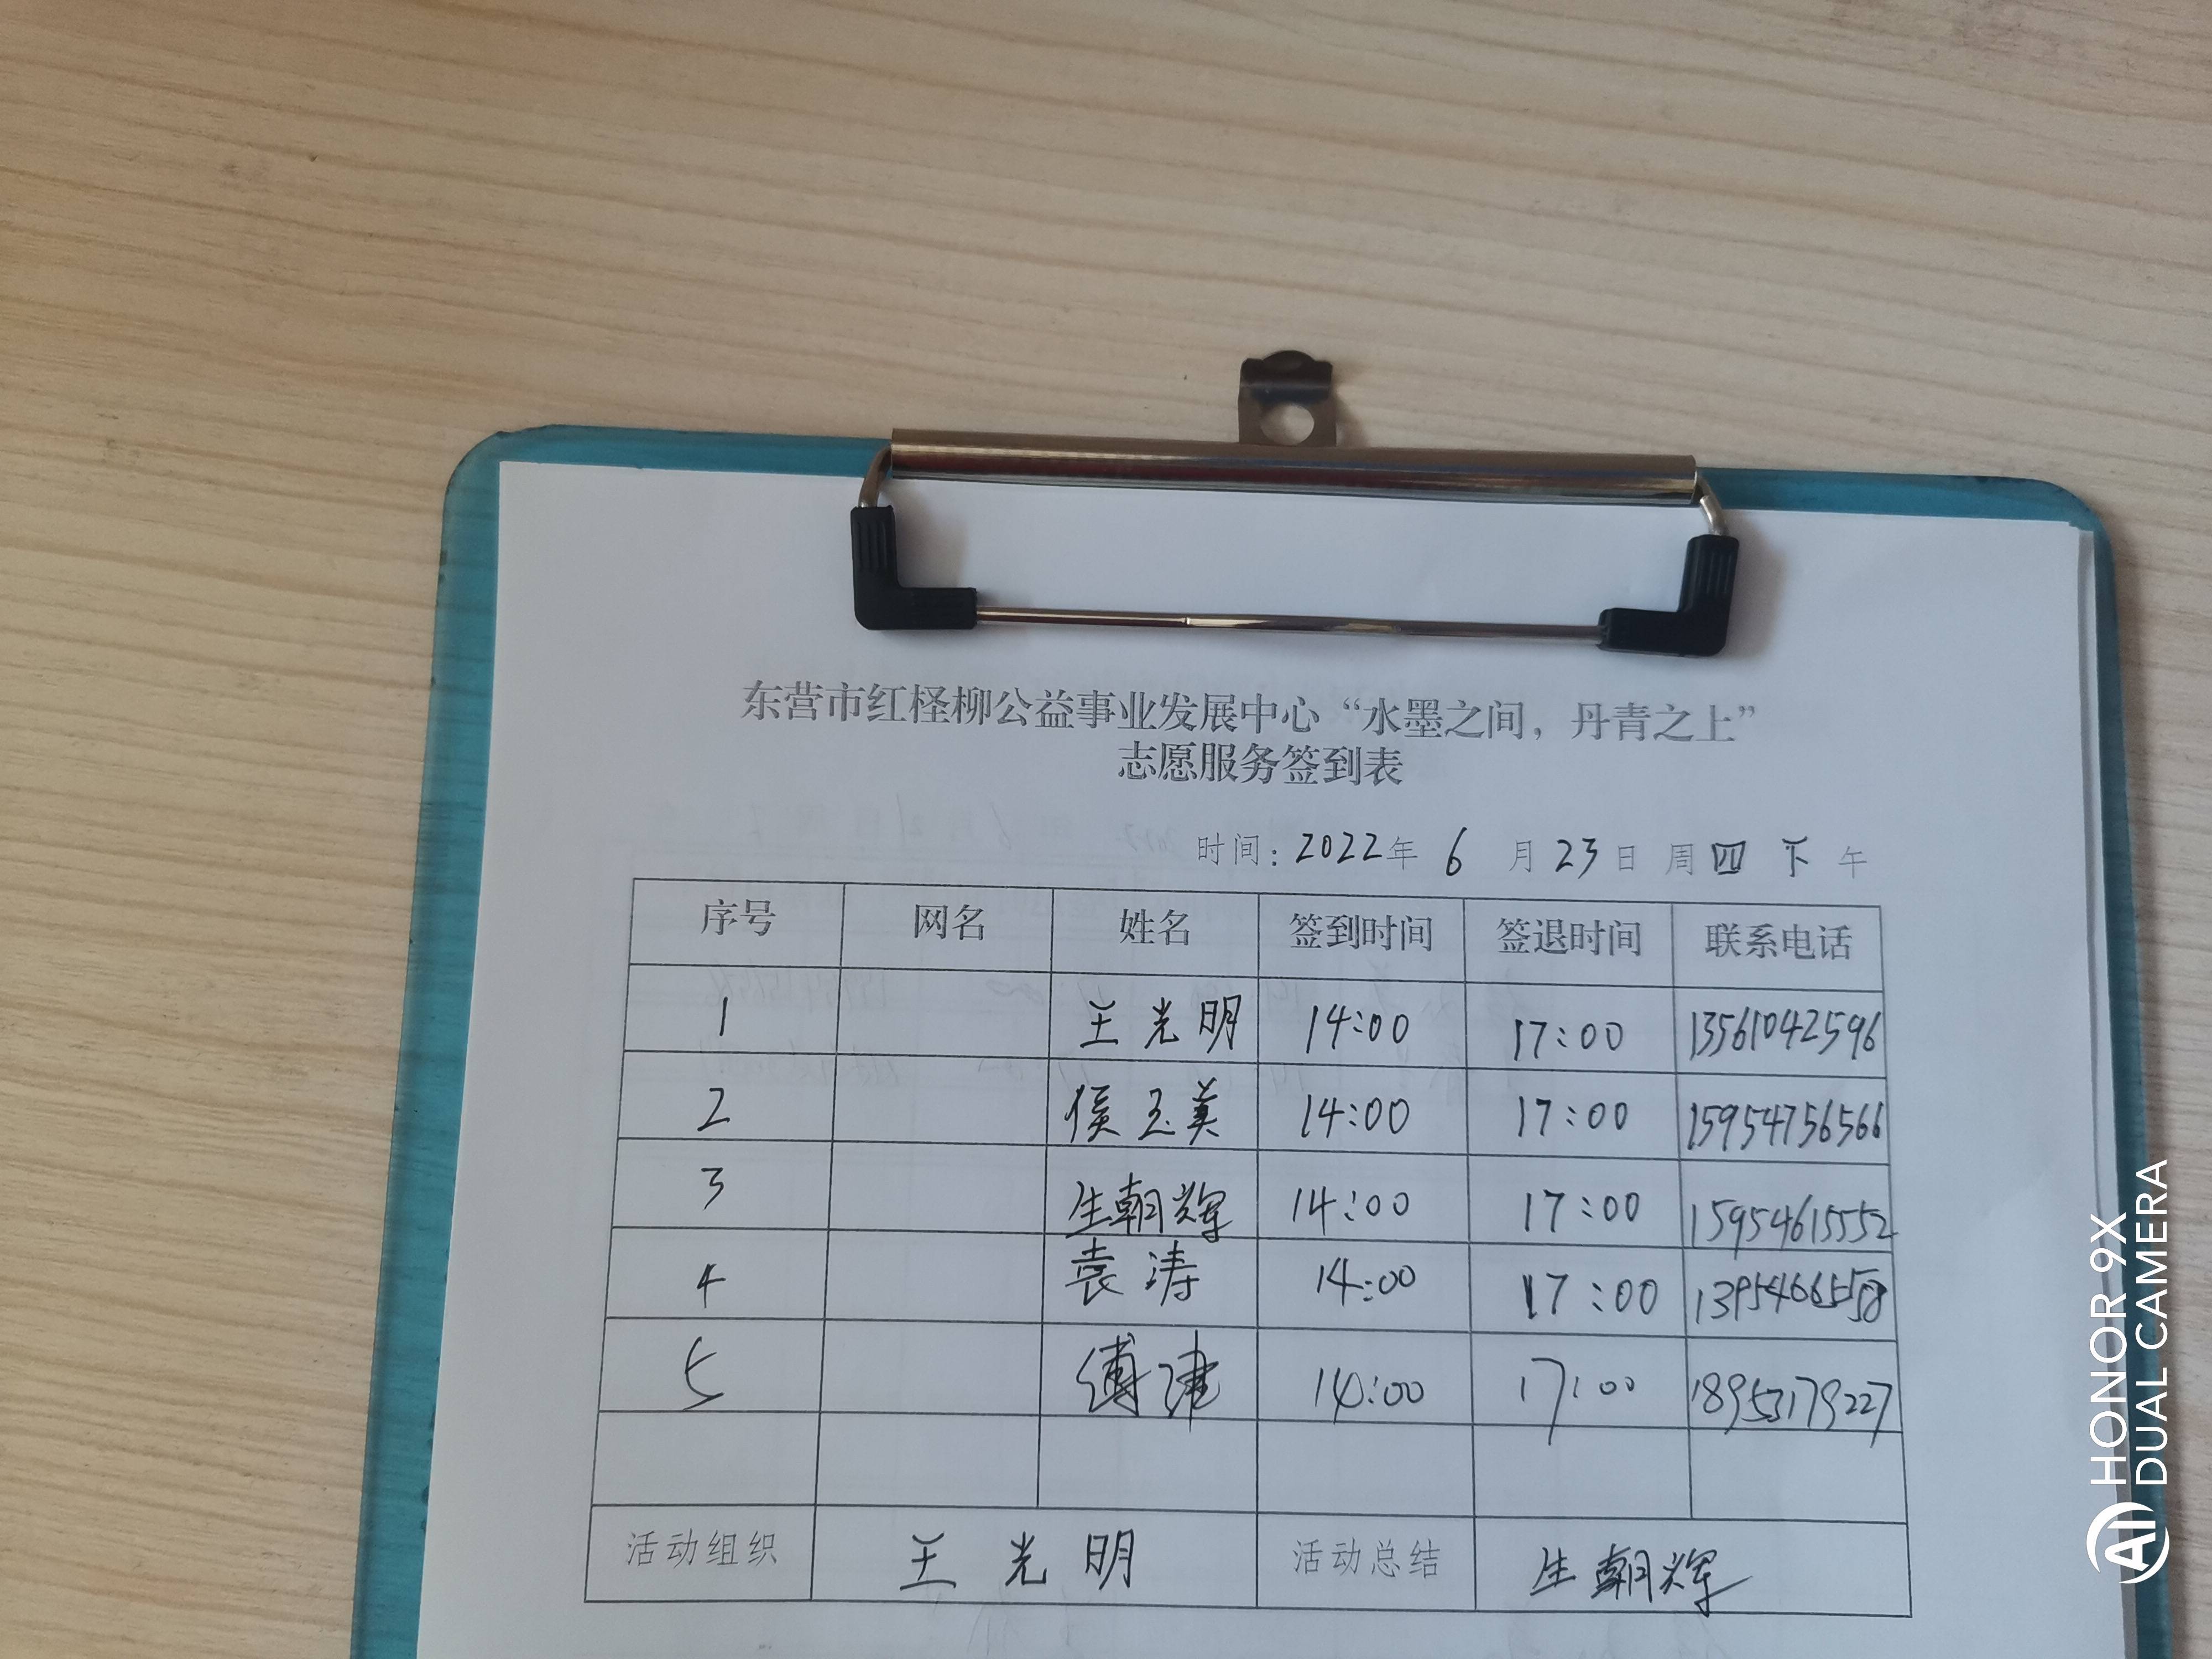 东营市红柽柳公益事业发展中心“水墨之间，丹青之上”
志愿服务签到表
时间：2022年 6 月 23 日 周四 下 午
序号 网名 姓名 签到时间 签退时间 联系电话
1 王光明 14:00 17:00 13561042596
2 侯玉美 14:00 17:00 15954756566
3 生朝辉 14:00 17:00 15954615552
4 袁涛 14:00 17:00 13954665558
5 14:00 17:00 18953179227
活动组织 王光明 活动总结 生朝辉
HONOR 9X
AI DUAL CAMERA